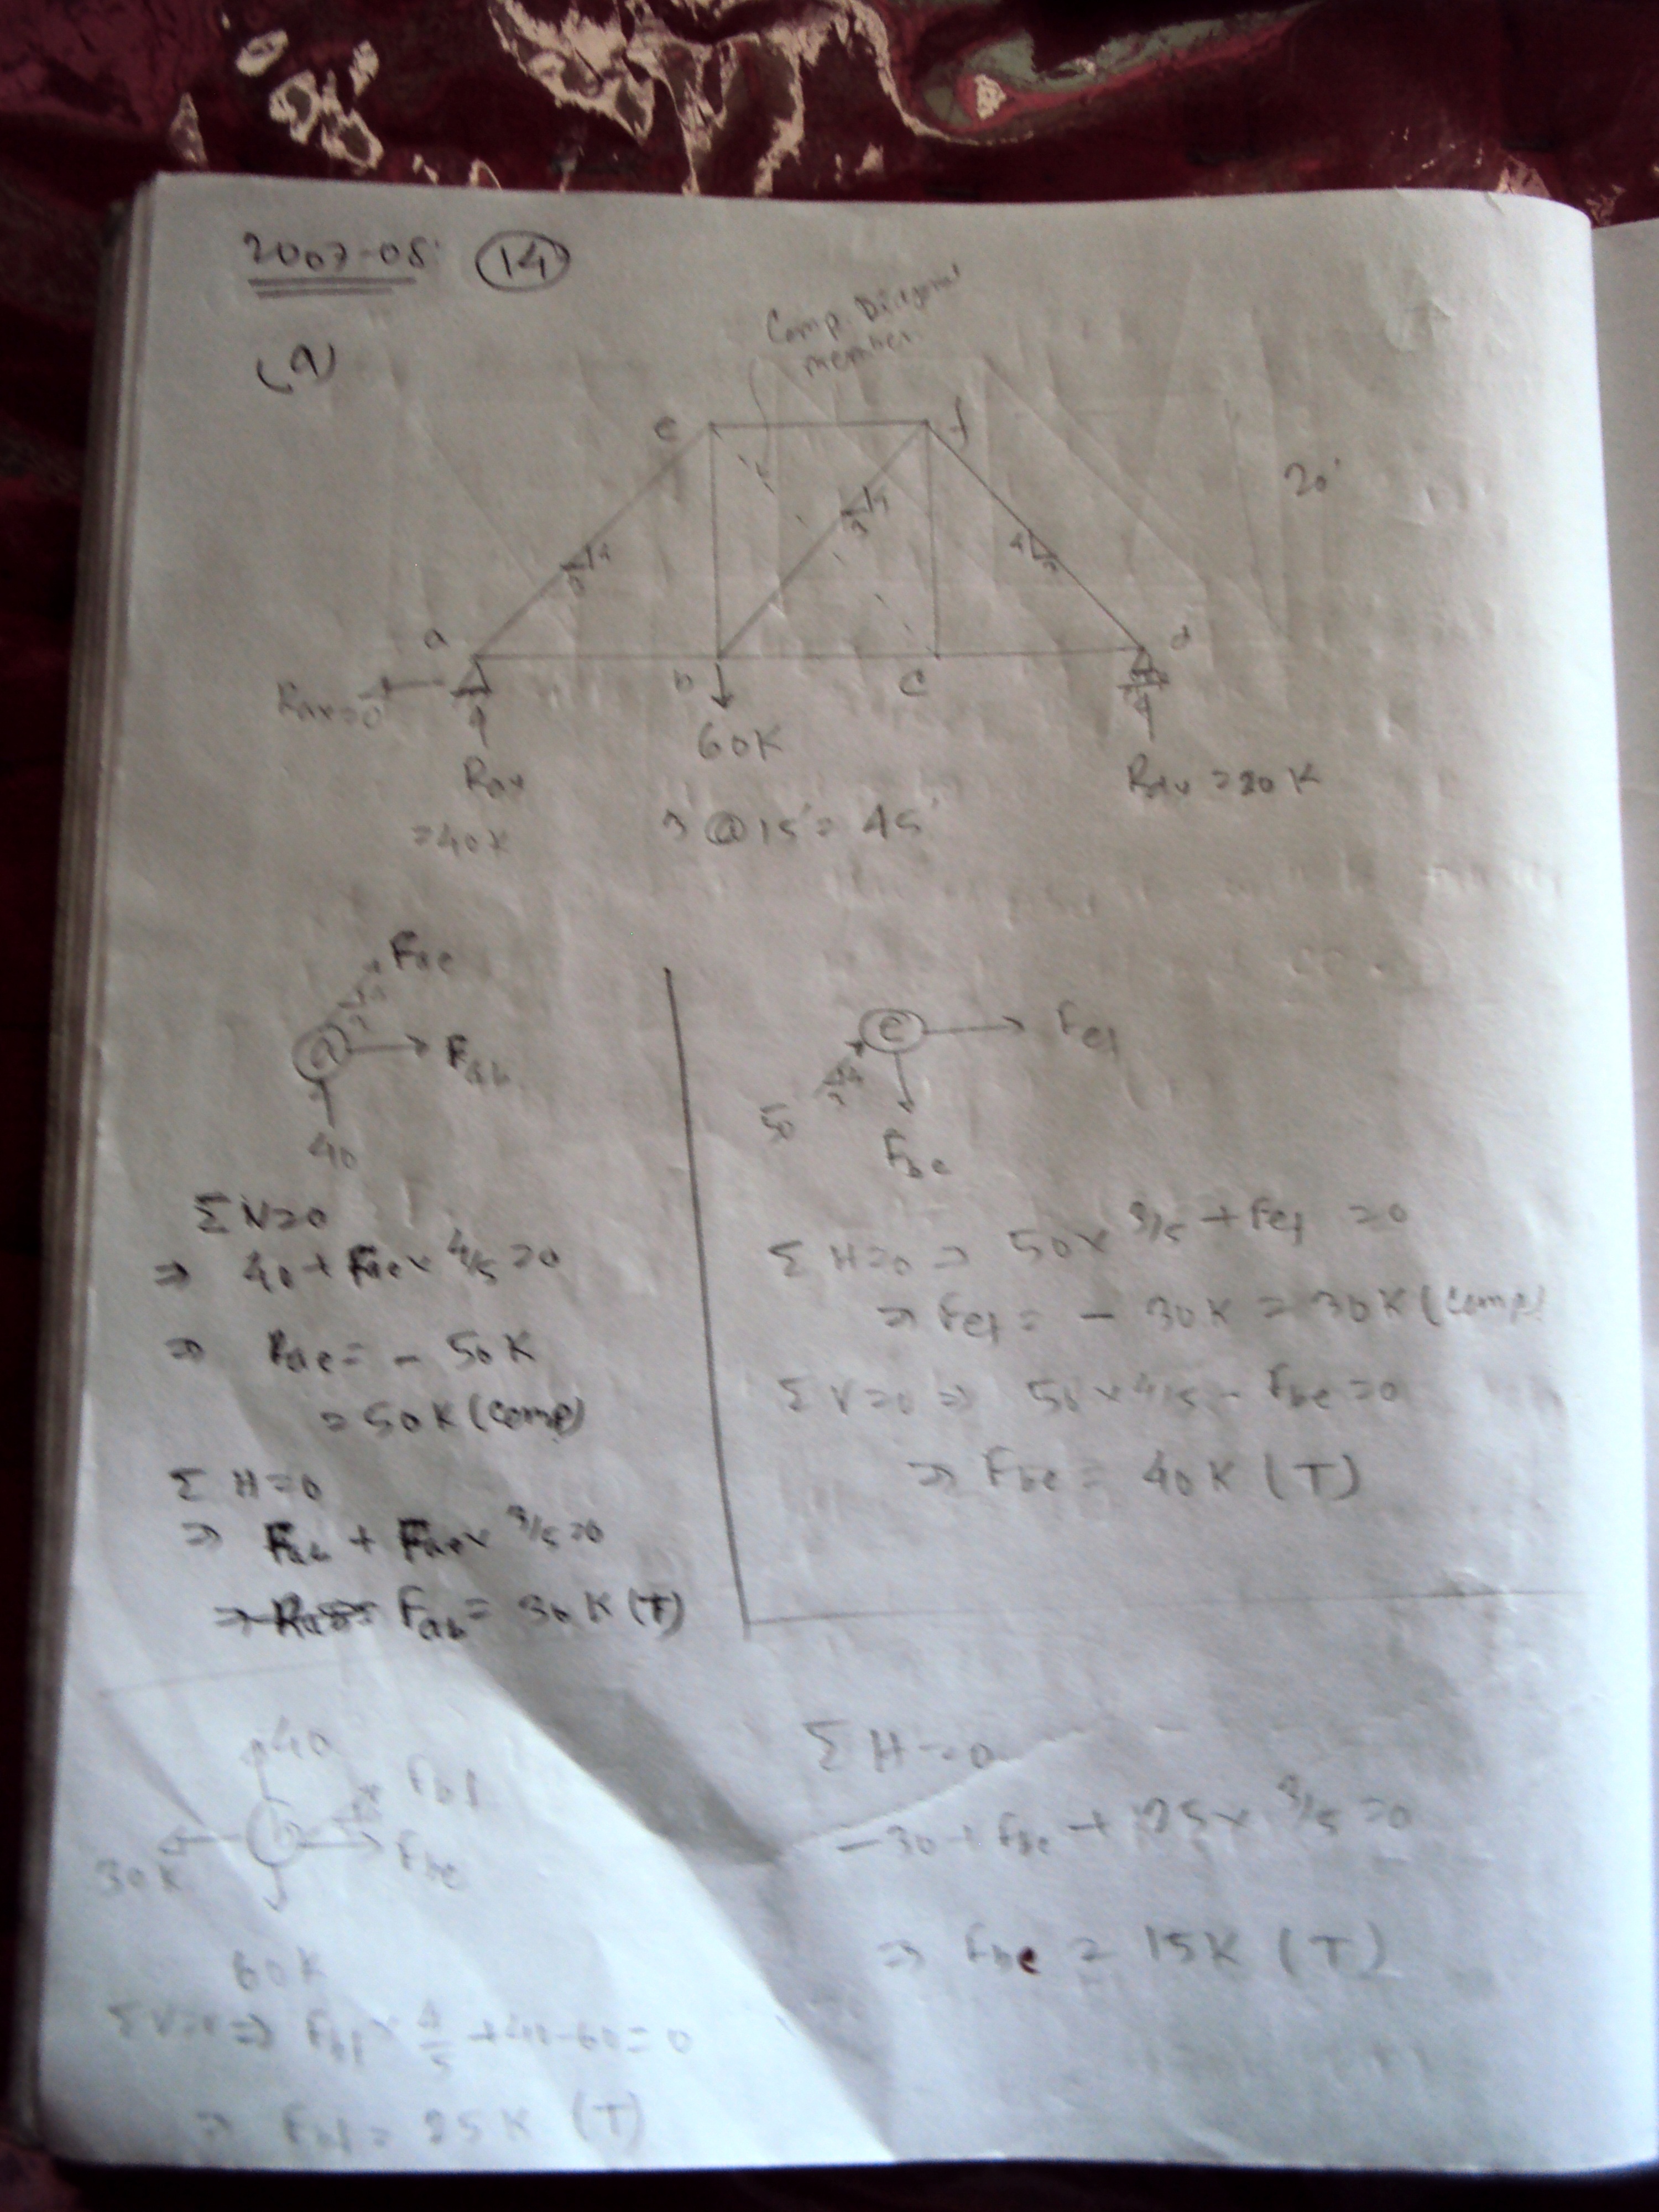 2007-08 (14)
(a)
Comp. Diagonal
member.
e f
20'
4
3
4
3
4
3
a b c d
Rax=0
60K
Rav
=40K
Rdv = 20K
3 @ 15' = 45'
Fae
Fab
a
40
ΣV=0
⇒ 40 + Fae × 4/5 = 0
⇒ Rae = - 50K
= 50K (comp)
Σ H=0
⇒ Fab + Fae × 3/5 = 0
⇒ Fab = 30K (T)
e
Fef
50
4
3
Fbe
Σ H=0 ⇒ 50 × 3/5 + Fef = 0
⇒ Fef = - 30K = 30K (comp)
Σ V=0 ⇒ 50 × 4/5 - Fbe = 0
⇒ Fbe = 40K (T)
40
Fbf
b
Fbc
30K
60K
ΣV=0 ⇒ Fbf × 4/5 + 40 - 60 = 0
⇒ Fbf = 25K (T)
Σ H=0
-30 + Fbc + 25 × 3/5 = 0
⇒ Fbc = 15K (T)